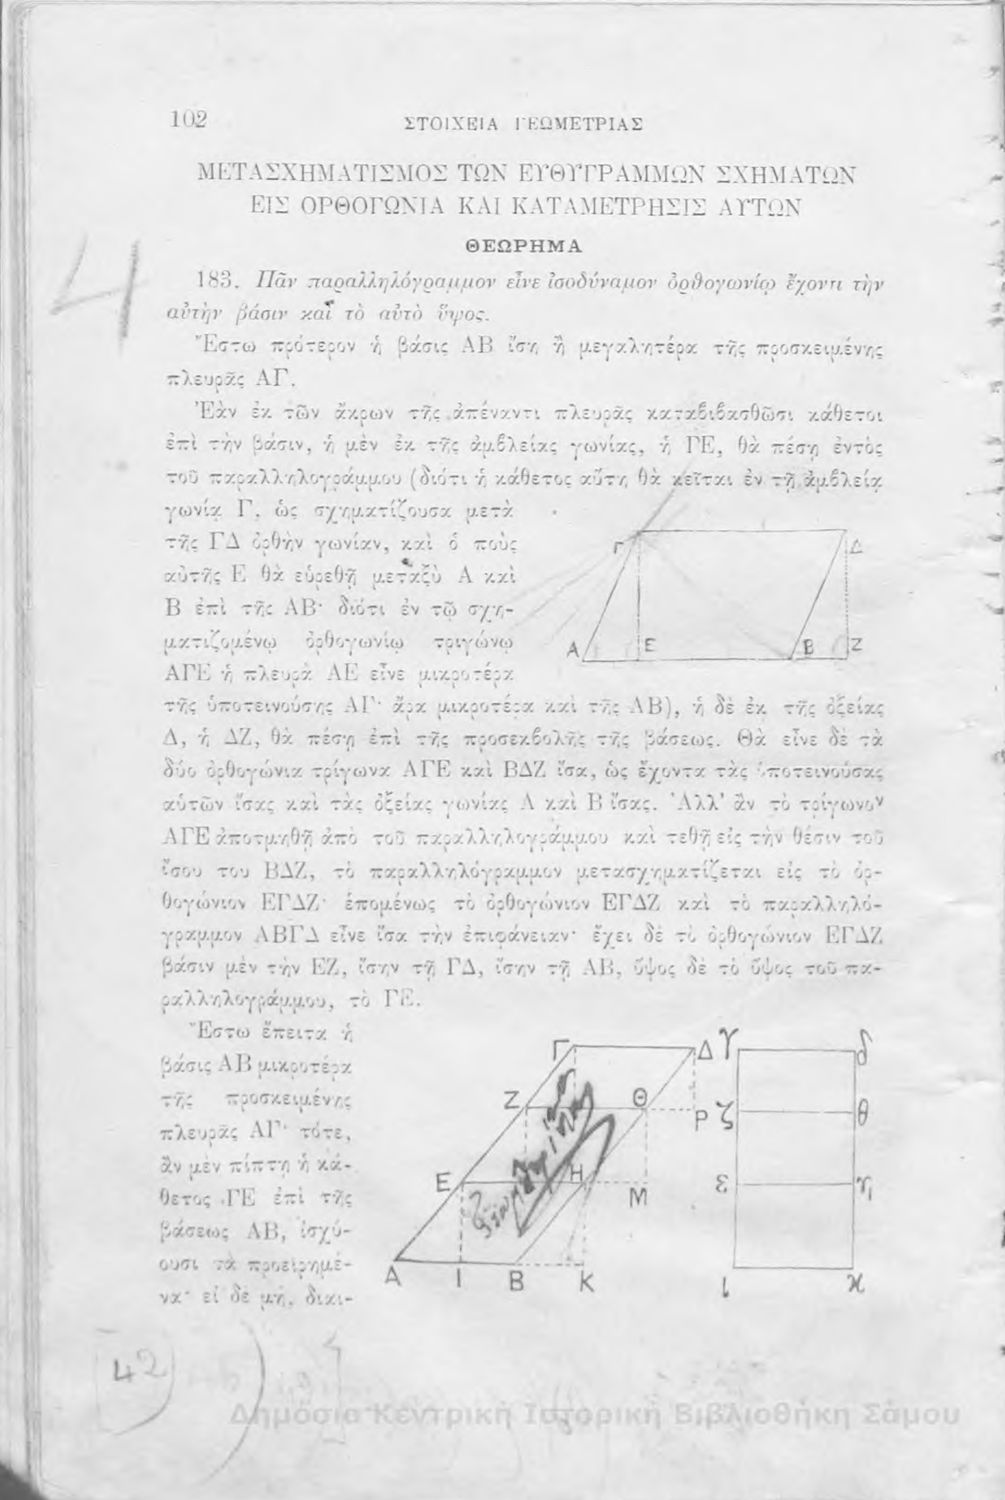 102
ΣΤΟΙΧΕΙΑ ΓΕΩΜΕΤΡΙΑΣ
ΜΕΤΑΣΧΗΜΑΤΙΣΜΟΣ ΤΩΝ ΕΥΘΥΓΡΑΜΜΩΝ ΣΧΗΜΑΤΩΝ
ΕΙΣ ΟΡΘΟΓΩΝΙΑ ΚΑΙ ΚΑΤΑΜΕΤΡΗΣΙΣ ΑΥΤΩΝ
ΘΕΩΡΗΜΑ
4
183. Πᾶν παραλληλόγραμμον εἶνε ἰσοδύναμον ὀρθογωνίῳ ἔχοντι τὴν
αὐτὴν βάσιν καὶ τὸ αὐτὸ ὕψος.
Ἔστω πρότερον ἡ βάσις ΑΒ ἴση ἢ μεγαλητέρα τῆς προσκειμένης
πλευρᾶς ΑΓ.
Ἐὰν ἐκ τῶν ἄκρων τῆς ἀπέναντι πλευρᾶς καταβιβασθῶσι κάθετοι
ἐπὶ τὴν βάσιν, ἡ μὲν ἐκ τῆς ἀμβλείας γωνίας, ἡ ΓΕ, θὰ πέσῃ ἐντὸς
τοῦ παραλληλογράμμου (διότι ἡ κάθετος αὕτη θὰ κεῖται ἐν τῇ ἀμβλείᾳ
γωνίᾳ Γ, ὡς σχηματίζουσα μετὰ
τῆς ΓΔ ὀρθὴν γωνίαν, καὶ ὁ ποὺς
αὐτῆς Ε θὰ εὑρεθῇ μεταξὺ Α καὶ
Β ἐπὶ τῆς ΑΒ· διότι ἐν τῷ σχη-
ματιζομένῳ ὀρθογωνίῳ τριγώνῳ
ΑΓΕ ἡ πλευρὰ ΑΕ εἶνε μικροτέρα
Γ Δ
Α Ε Β Ζ
τῆς ὑποτεινούσης ΑΓ· ἄρα μικροτέρα καὶ τῆς ΑΒ), ἡ δὲ ἐκ τῆς ὀξείας
Δ, ἡ ΔΖ, θὰ πέσῃ ἐπὶ τῆς προσεκβολῆς τῆς βάσεως. Θὰ εἶνε δὲ τὰ
δύο ὀρθογώνια τρίγωνα ΑΓΕ καὶ ΒΔΖ ἴσα, ὡς ἔχοντα τὰς ὑποτεινούσας
αὐτῶν ἴσας καὶ τὰς ὀξείας γωνίας Α καὶ Β ἴσας. Ἀλλ' ἂν τὸ τρίγωνον
ΑΓΕ ἀποτμηθῇ ἀπὸ τοῦ παραλληλογράμμου καὶ τεθῇ εἰς τὴν θέσιν τοῦ
ἴσου του ΒΔΖ, τὸ παραλληλόγραμμον μετασχηματίζεται εἰς τὸ ὀρ-
θογώνιον ΕΓΔΖ· ἑπομένως τὸ ὀρθογώνιον ΕΓΔΖ καὶ τὸ παραλληλό-
γραμμον ΑΒΓΔ εἶνε ἴσα τὴν ἐπιφάνειαν· ἔχει δὲ τὸ ὀρθογώνιον ΕΓΔΖ
βάσιν μὲν τὴν ΕΖ, ἴσην τῇ ΓΔ, ἴσην τῇ ΑΒ, ὕψος δὲ τὸ ὕψος τοῦ πα-
ραλληλογράμμου, τὸ ΓΕ.
Ἔστω ἔπειτα ἡ
βάσις ΑΒ μικροτέρα
τῆς προσκειμένης
πλευρᾶς ΑΓ· τότε,
ἂν μὲν πίπτῃ ἡ κά-
θετος ΓΕ ἐπὶ τῆς
βάσεως ΑΒ, ἰσχύ-
ουσι τὰ προειρημέ-
να· εἰ δὲ μή, διαι-
Γ Δ γ δ
Ζ Θ Ρ ζ θ
Ε Η Μ ε η
Α Ι Β Κ ι κ
42
Δημόσια Κεντρική Ιστορική Βιβλιοθήκη Σάμου